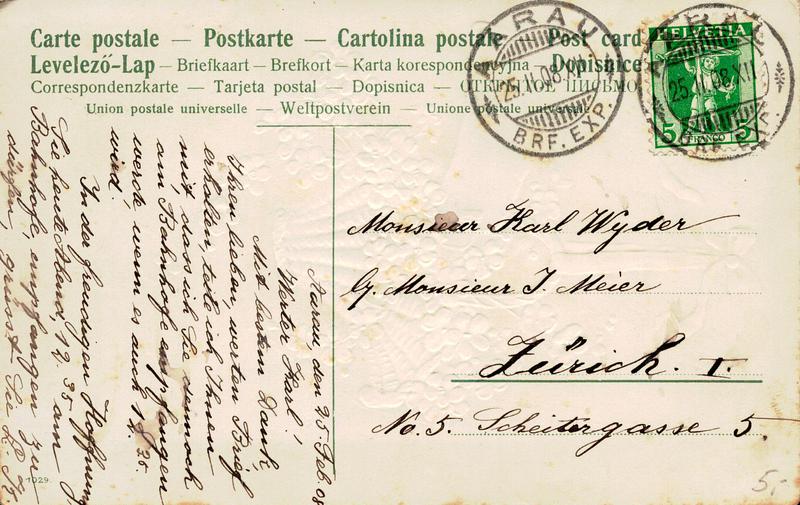 Carte postale — Postkarte — Cartolina postale — Post card
Levelező-Lap — Briefkaart — Brefkort — Karta korespondencyjna — Dopisnice
Correspondenzkarte — Tarjeta postal — Dopisnica — ОТКРЫТОЕ ПИСЬМО
Union postale universelle — Weltpostverein — Unione postale universale
AARAU
25.II.08.XII
BRF. EXP.
HELVETIA
5 FRANCO 5
AARAU
25.II.08.XII
BRF. EXP.
Monsieur Karl Wyder
b/. Monsieur J. Meier
Zürich. I.
No. 5. Scheitergasse 5.
Aarau, den 25. Feb. 08
Werter Karl!
Mit bestem Dank
Ihren lieben werten Brief
erhalten teile ich Ihnen
mit, dass ich Sie dennoch
am Bahnhofe empfangen
werde wenn es auch 12 35.
wird.
In der freudigen Hoffnung
Sie heute Abend, 12. 35 am
Bahnhofe, empfangen zu
dürfen, grüsst Sie
1029
5.-